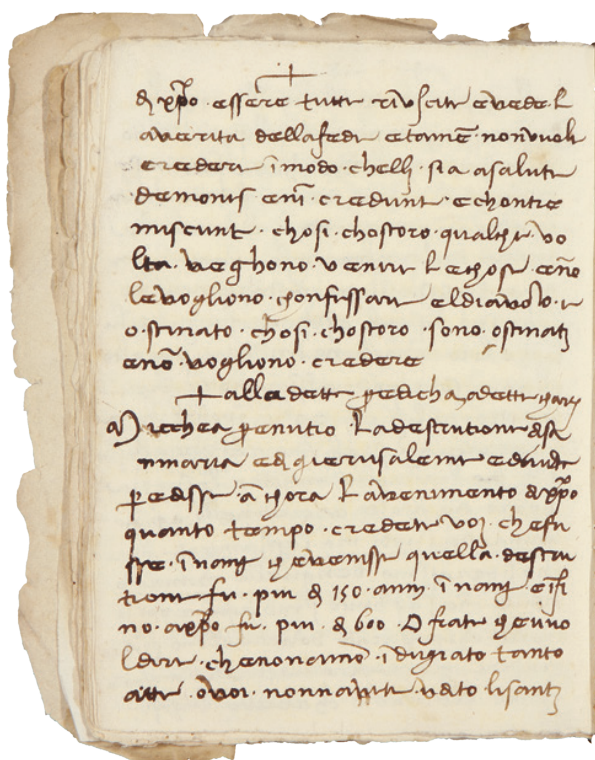 di xp̃o · essere tutte riuscite e vedel
a verita della fede e tamẽ · non vuole
credere ĩ modo · chelli · sia a salute
demonis enĩ · credunt · e chontre
miscunt · chosi · chostoro · qualche · vo
lta · veghono · venire le chose e nõ
le vogliono · chonfessare el diavolo · e
o·stinato · chosi · chostoro · sono · ostinati
e nõ · vogliono · credere
alla dette p̱edicha, a dette
Michea p̱ enutio · La destrutione di sa
maria e di gierusaleme e davide
p̱ edisse · ãchora lavenimento di xp̃o
quanto tempo · credete voi · che fu
sse · ĩnanzi che venisse quella · destru
tione fu · piu di 150 · anni · ĩnanzi e ĩfi
no · a xp̃o fu · piu · di 600 · O frate che vuo
l dire · che non anno · ĩdugiato tanto
atte · o voi · non n avete · vato li santi